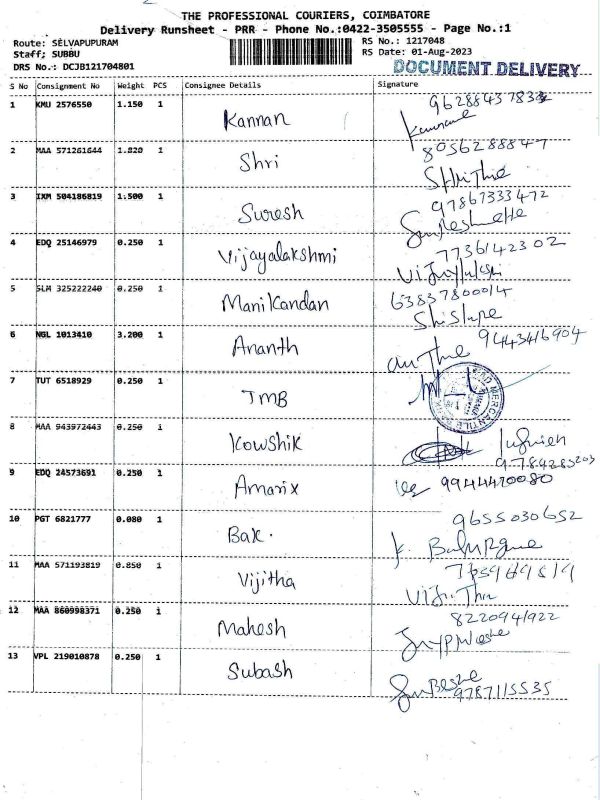 THE PROFESSIONAL COURIERS, COIMBATORE
Delivery Runsheet - PRR - Phone No.:0422-3505555 - Page No.:1
Route: SELVAPUPURAM RS No.: 1217048
Staff; SUBBU RS Date: 01-Aug-2023
DRS No.: DCJB121704801 DOCUMENT DELIVERY
S No Consignment No Weight PCS Consignee Details Signature
1 KMU 2576550 1.150 1 Kannan
2 MAA 571261644 1.820 1 Shri 8056288847
3 IXM 504186819 1.500 1 Suresh 97867333472
4 EDQ 25146979 0.250 1 Vijayalakshmi 7736142302
5 SLM 325222240 0.250 1 Manikandan 6383780014
6 NGL 1013410 3.200 1 Ananth 9443416904
7 TUT 6518929 0.250 1 TMB
8 MAA 943972443 0.250 1 Kowshik
9 EDQ 24573691 0.250 1 Amarix 9944420080
10 PGT 6821777 0.080 1 Bak. 9655030652
11 MAA 571193819 0.850 1 Vijitha
12 MAA 860998371 0.250 1 Mahesh 8220941922
13 VPL 219010878 0.250 1 Subash 9787115535